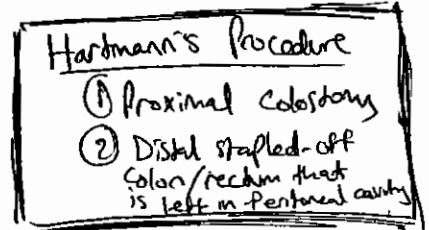 Hartmann's Procedure
① Proximal Colostomy
② Distal stapled-off
colon/rectum that
is left in Peritoneal cavity